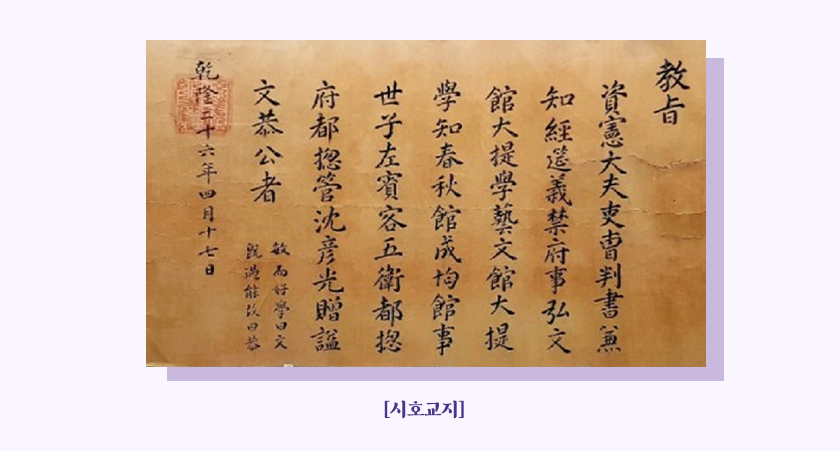 教旨
資憲大夫吏曹判書兼
知經筵義禁府事弘文
館大提學藝文館大提
學知春秋館成均館事
世子左賓客五衛都摠
府都摠管沈彦光贈諡
文恭公者
敏而好學曰文
旣過能改曰恭
乾隆二十六年四月十七日
[시호교지]